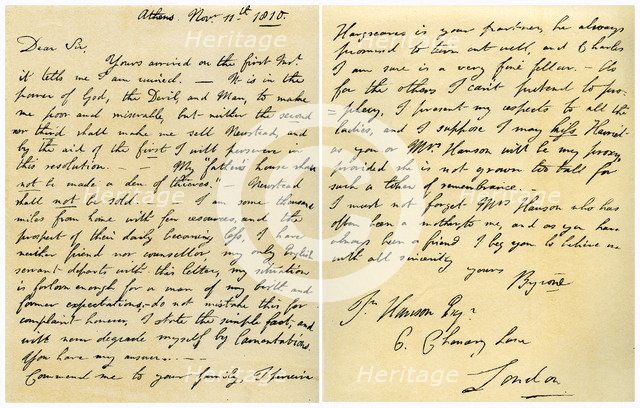 Athens. Novr 11th 1810.
Dear Sir,
Yours arrived on the first Inst.
it tells me I am ruined. — It is in the
power of God, the Devil, and Man, to make
me poor and miserable, but neither the second
nor third shall make me sell Newstead, and
by the aid of the first I will persevere in
this resolution. — — My "father's" house shall
not be made a den of thieves. — Newstead
shall not be sold. — I am some thousand
miles from home with few resources, and the
prospect of their daily becoming less, I have
neither friend nor counsellor, my only English
servant departs with this letter, my situation
is forlorn enough for a man of my birth and
former expectations, – do not mistake this for
complaint however, I state the simple fact, and
will never degrade myself by lamentations.
You have my answer. — —
Commend me to your family, I
Hargreaves is your partner, he always
promised to turn out well, and Charles
I am sure is a very fine fellow. — As
for the others I can't pretend to pro-
= phecy, I present my respects to all the
ladies, and I suppose I may kiss Harriet
as you or Mrs Hanson will be my proxy,
provided she is not grown too tall for
such a token of remembrance.
I must not forget Mrs Hanson who has
often been a mother to me, and as you have
always been a friend I beg you to believe me
with all sincerity
yours
Byron
Jn Hanson Esqr
6. Chancery Lane
London
Heritage
Heritage
Heritage
Heritage
Heritage
Heritage